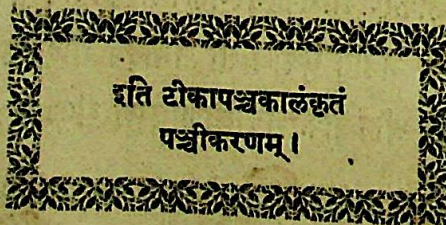 इति टीकापञ्चकालंकृतं
पञ्चीकरणम् ।